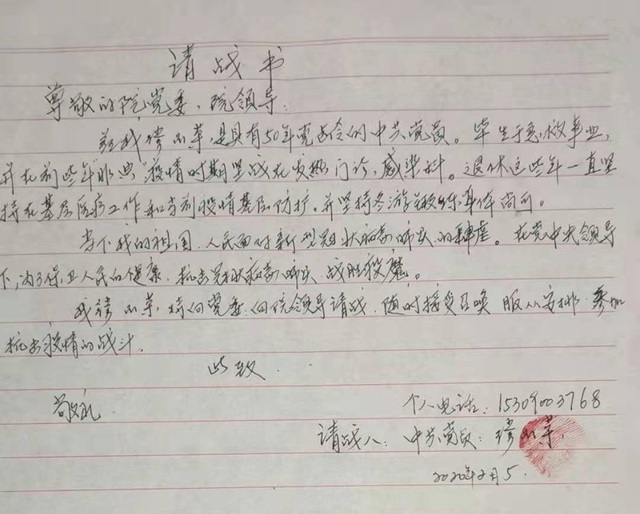 请战书
尊敬的院党委、院领导:
我 是具有50年党龄的中共党员。毕生于急救事业,
并在前些年非典疫情时期坚战在发热门诊、感染科。退休这些年一直坚
持在基层医疗工作和当前疫情基层防护,并坚持冬游 身体尚可。
当下我的祖国、人民面对新型冠状病毒肺炎的肆虐。在党中央领导
下,为了保卫人民的健康,抗击冠状病毒肺炎 战胜疫魔。
我 向党委、向院领导请战。随时接受召唤 服从安排 参加
抗击疫情的战斗。
此致
敬礼
个人电话:15309003768
请战人:中共党员:
2020年2月5.